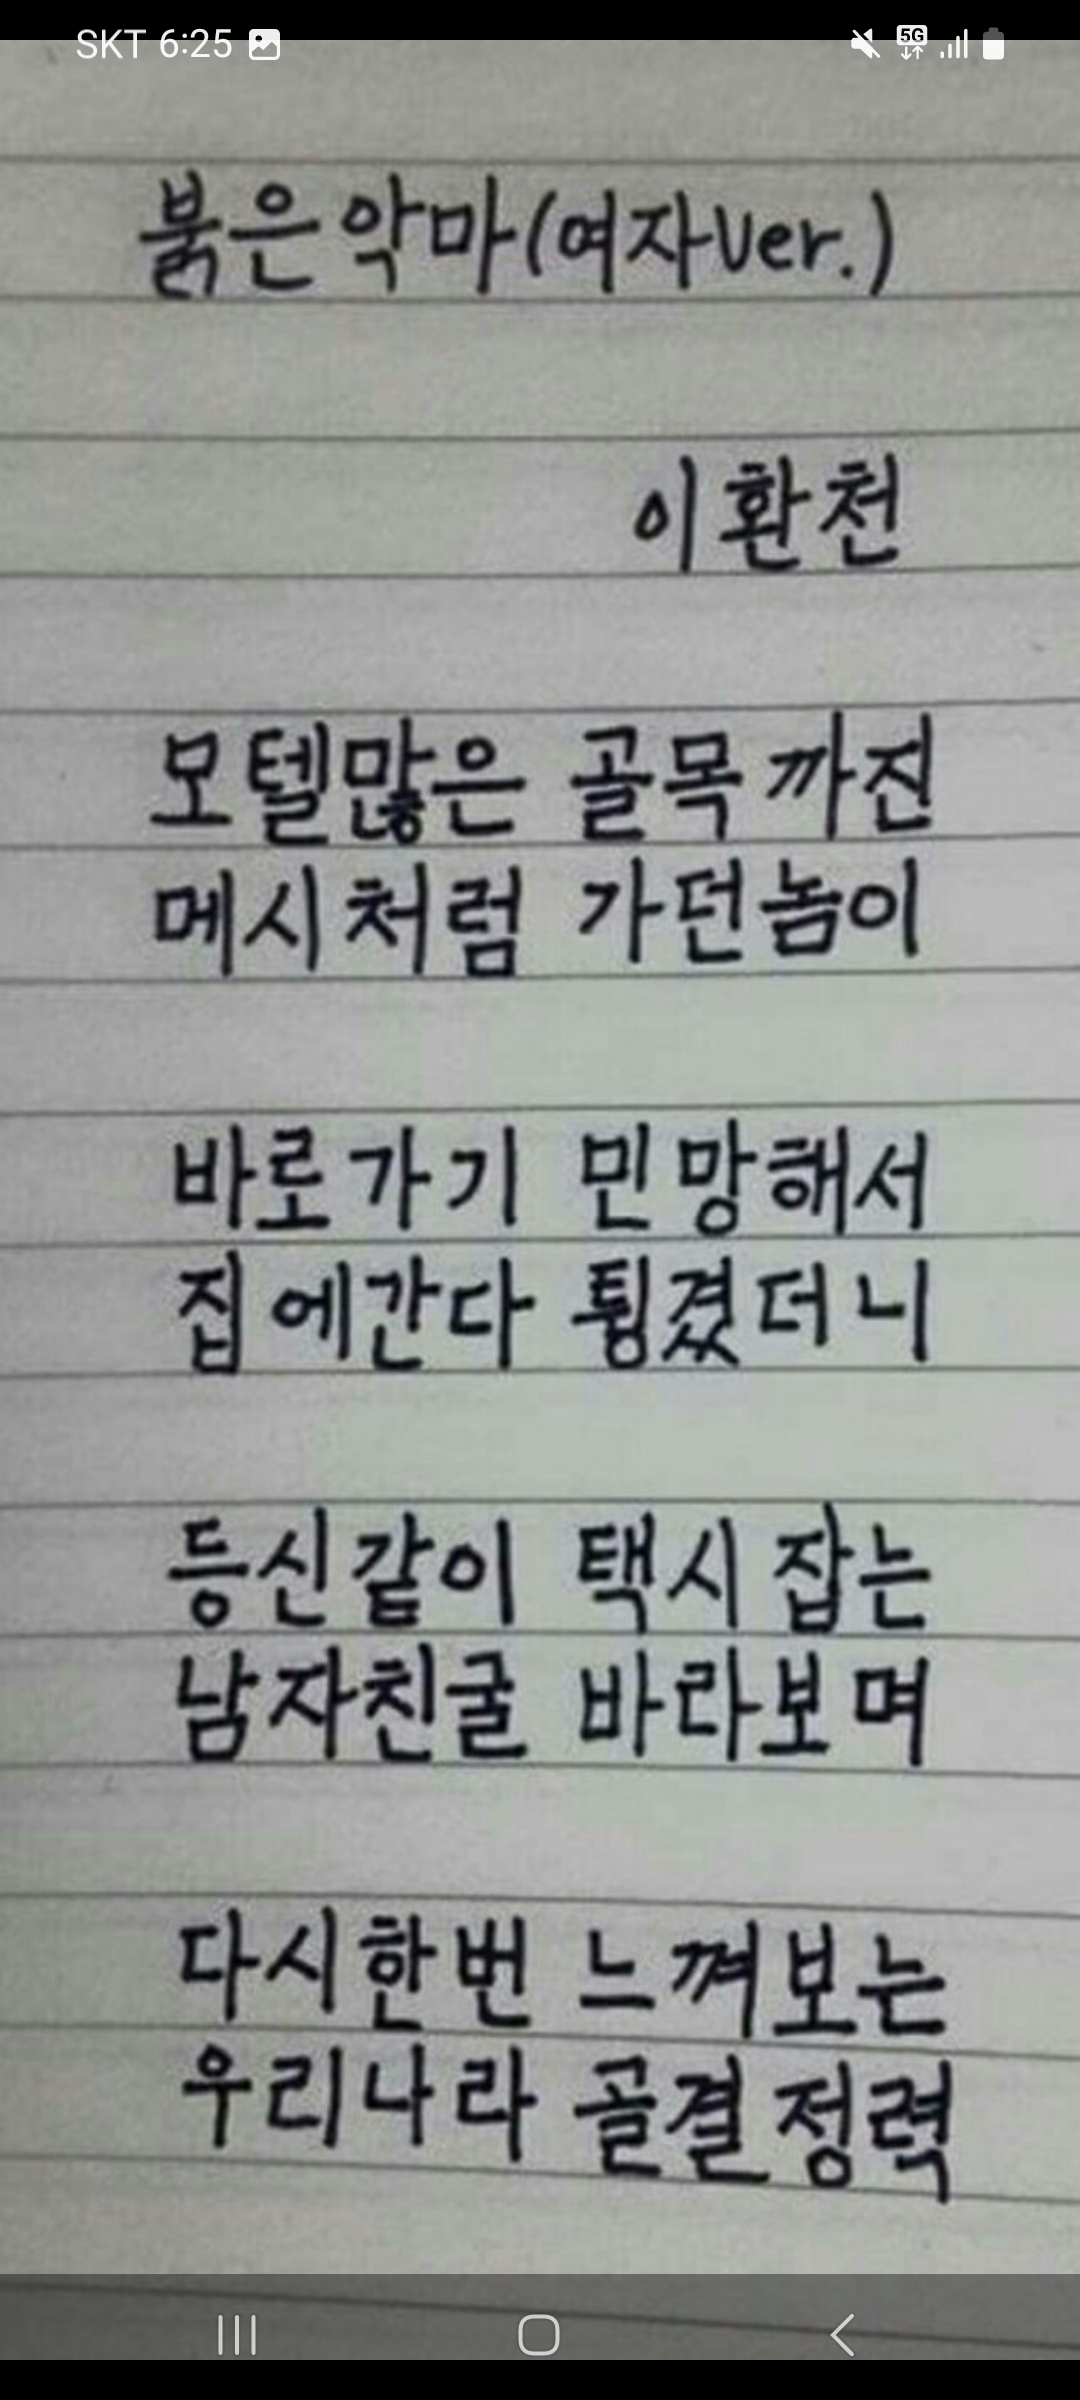 SKT 6:25
5G
붉은악마(여자Ver.)
이환천
모텔많은 골목까진
메시처럼 가던놈이
바로가기 민망해서
집에간다 튕겼더니
등신같이 택시잡는
남자친굴 바라보며
다시한번 느껴보는
우리나라 골결정력